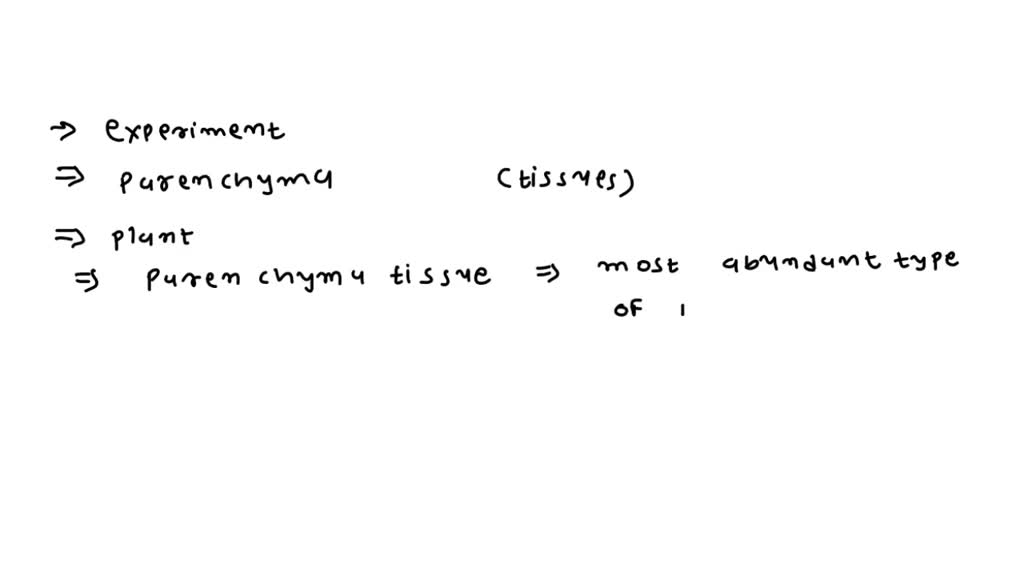 → experiment
⇒ parenchyma (tissues)
⇒ plant
⇒ parenchyma tissue ⇒ most abundant type
of